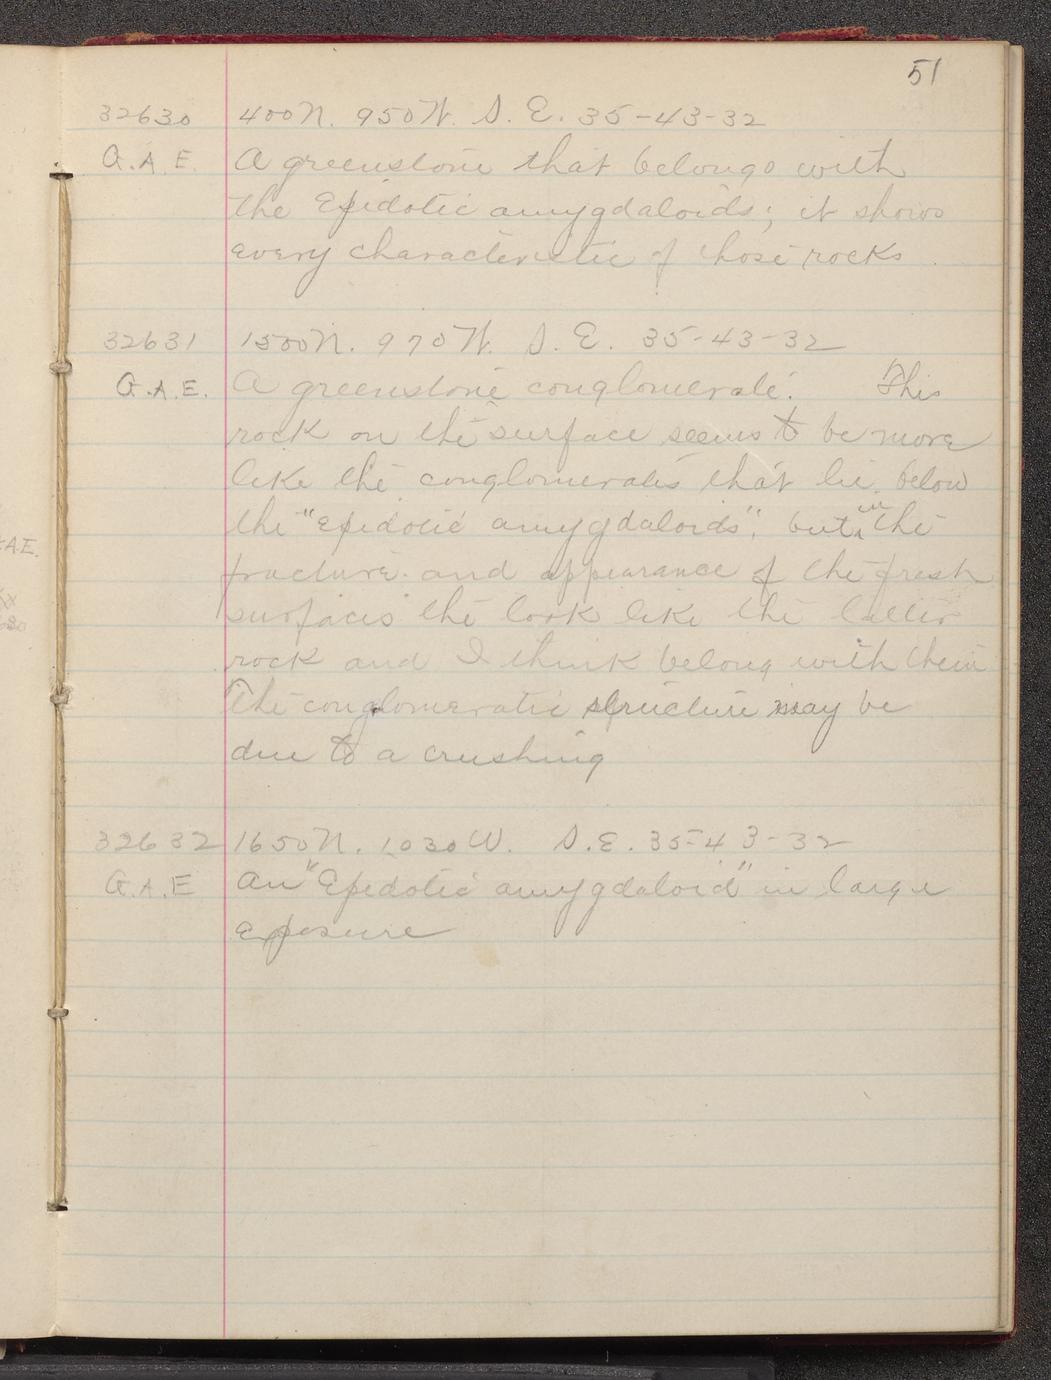 51
32630 400N. 950W. S.E. 35-43-32
G.A.E. A greenstone that belongs with
the Epidotic amygdaloids; it shows
every characteristic of those rocks.
32631 1500N. 970W. S.E. 35-43-32
G.A.E. A greenstone conglomerate. This
rock on the surface seems to be more
like the conglomerates that lie below
the "epidotic amygdaloids", but in the
fracture and appearance of the fresh
surfaces the look like the latter
rock and I think belong with them
The conglomeratic structure may be
due to a crushing
32632 1650N. 1030W. S.E. 35-43-32
G.A.E An "Epidotic amygdaloid" in large
exposure
A.E.